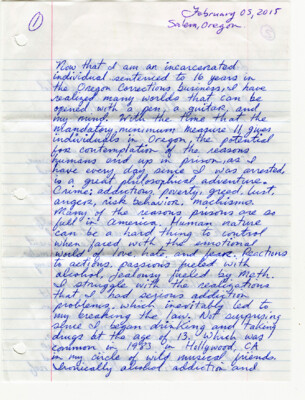 February 03, 2015
Salem, Oregon
1
Now that I am an incarcerated
individual sentenced to 16 years in
the Oregon Corrections business, I have
realized many worlds that can be
opened with a pen, a guitar, and
my mind. With the time that the
mandatory minimum measure 11 gives
individuals in Oregon, the potential
for contemplation of the reasons
humans end up in prison, as I
have every day sence I was arrested,
is a great philosophical adventure.
Crime: addictions, poverty, greed, lust,
anger, risk behavior, machismo.
Many of the reasons prisons are so
full in America. Human nature
can be a hard thing to control
when faced with the emotional
world of love, hate, and fear. Reactions
to actions. Passions fueled with
alcohol, jealousy fueled by meth.
I struggle with the realizations
that I had serious addiction
problems, which inevitably led to
my breaking the law. Not surprising
since I began drinking and taking
drugs at the age of 13. Which was
common in 1983 in Hollywood, CA
in my circle of wild musical friends.
Ironically alcohol addiction and